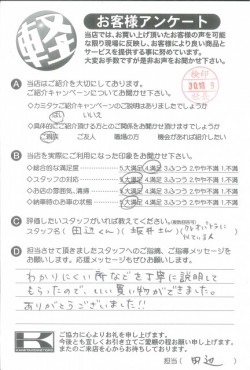 軽
お客様アンケート
当店では、お買い上げ頂いたお客様の声を可能
な限り現場に反映し、お客様により良い商品と
サービスを提供する事に努めています。
大変お手数ですが是非お声をお聞かせ下さい。
検印
A 当店はご紹介を大切にしております。
ご紹介キャンペーンについてお聞かせ下さい。
◇カミタケご紹介キャンペーンのご説明はありましたでしょうか
はい いいえ
◇具体的にご紹介頂ける方とのご関係をお聞かせ頂けますでしょうか
ご親族 ご友人 職場の方 機会があれば紹介したい
B 当店を実際にご利用になった印象をお聞かせ下さい。
◇総合的な満足度 5.大満足 4.満足 3.ふつう 2.やや不満 1.不満
◇スタッフの対応 5.大満足 4.満足 3.ふつう 2.やや不満 1.不満
◇お店の雰囲気、清掃 5.大満足 4.満足 3.ふつう 2.やや不満 1.不満
◇納車時のお車の状態 5.大満足 4.満足 3.ふつう 2.やや不満 1.不満
C 評価したいスタッフがいれば教えてください。(複数回答可)
スタッフ名( 田辺くん )( 坂井さん )
D 担当させて頂きましたスタッフへのご指摘、ご応援メッセージを
お願いします。ご応援メッセージもお待ちしております。
わかりにくい所などを丁寧に説明して
もらったので、いい買い物ができました。
ありがとうございました!!
K
ご協力に心よりお礼を申し上げます。
今後とも宜しくお引き立てご愛顧の程お願い申し上げます。
またのご来店を心からお待ちしております。
担当( 田辺 )